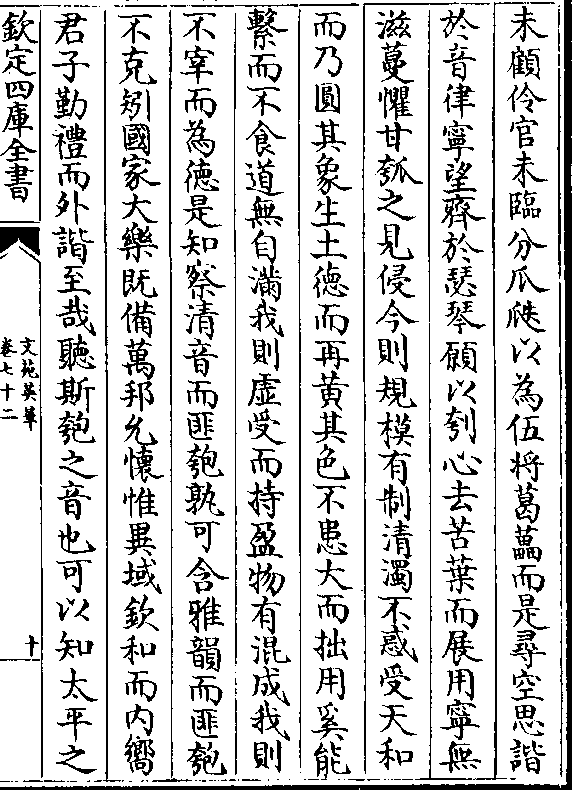 未顧伶官未臨分瓜瓞以為伍將葛藟而是尋空思諧
於音律寧望齊於瑟琴願以刳心去苦葉而展用寧無
滋蔓懼甘瓠之見侵今則規模有制清濁不惑受天和
而乃圓其象生土德而再黄其色不患大而拙用奚能
繫而不食道無自滿我則虚受而持盈物有混成我則
不宰而為徳是知察清音而匪匏孰可含雅韻而匪匏
不克矧國家大樂既備萬邦允懷惟異域欽和而内嚮
君子勤禮而外諧至哉聽斯匏之音也可以知太平之
欽定四庫全書
文苑英華
卷七十二
十